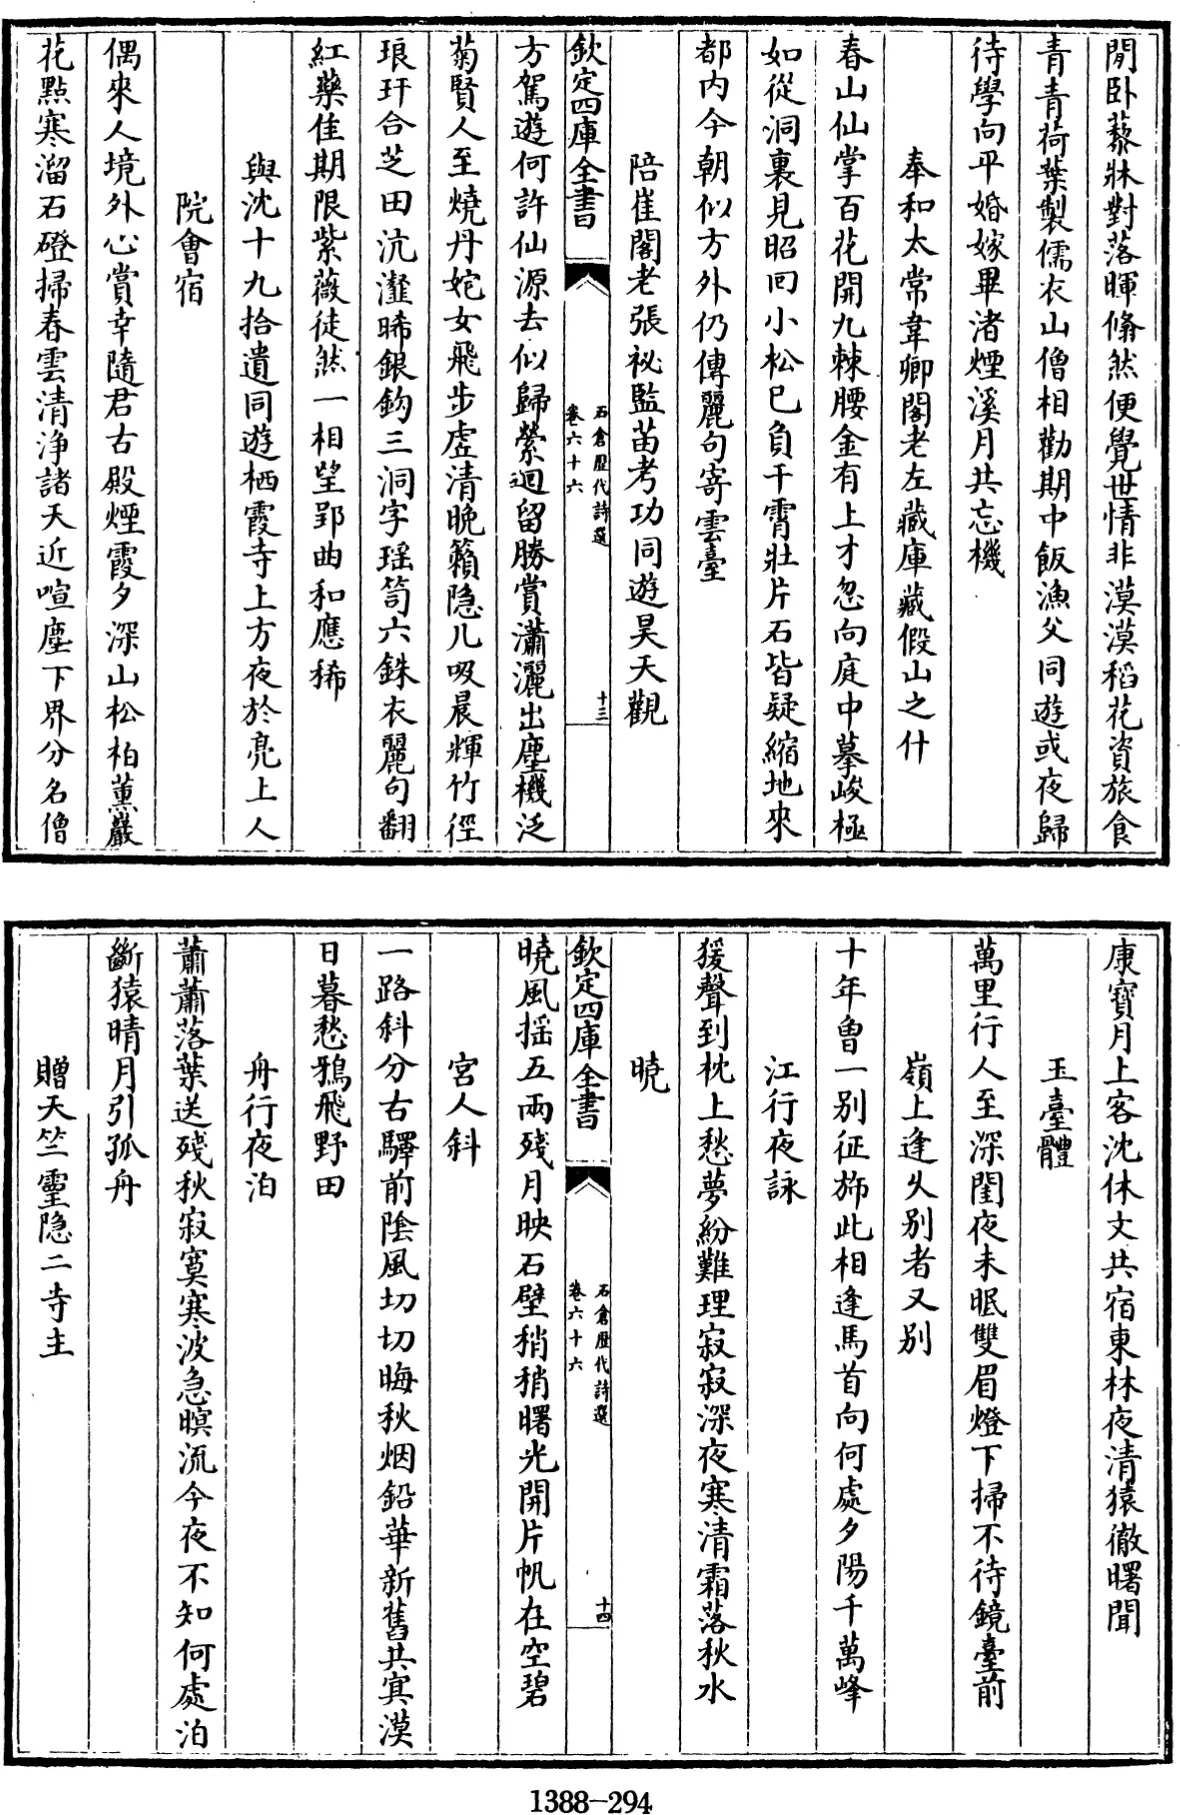 閒卧藜牀對落暉翛然便覺世情非漠漠稻花資旅食
青青荷葉製儒衣山僧相勸期中飯漁父同遊或夜歸
待學向平婚嫁畢渚煙溪月共忘機
奉和太常韋卿閣老左藏庫藏假山之什
春山仙掌百花開九棘腰金有上才忽向庭中摹峻極
如從洞裏見昭回小松已負干霄壯片石皆疑縮地來
都内今朝似方外仍傳麗句寄雲臺
陪崔閣老張祕監苗考功同遊昊天觀
欽定四庫全書
石倉歷代詩選
卷六十六
十三
方駕遊何許仙源去似歸縈迴留勝賞瀟灑出塵機泛
菊賢人至燒丹姹女飛步虚清晚籟隐几吸晨輝竹徑
琅玕合芝田沆瀣晞銀鈎三洞字瑶笥六銖衣麗句翻
紅藥佳期限紫薇徒然一相望郢曲和應稀
與沈十九拾遺同遊栖霞寺上方夜於亮上人
院會宿
偶來人境外心賞幸隨君古殿煙霞夕深山松柏薰巖
花點寒溜石磴掃春雲清浄諸天近喧塵下界分名僧
康寶月上客沈休文共宿東林夜清猿徹曙聞
玉臺體
萬里行人至深閨夜未眠雙眉燈下掃不待鏡臺前
嶺上逢乆别者又别
十年曾一别征斾此相逢馬首向何處夕陽千萬峰
江行夜詠
猨聲到枕上愁夢紛難理寂寂深夜寒清霜落秋水
曉
欽定四庫全書
石倉歷代詩選
卷六十六
十四
曉風揺五兩殘月映石壁稍稍曙光開片帆在空碧
宫人斜
一路斜分古驛前陰風切切晦秋烟鉛華新舊共寞漠
日暮愁鴉飛野田
舟行夜泊
蕭蕭落葉送殘秋寂寞寒波急暝流今夜不知何處泊
斷猿晴月引孤舟
贈天竺靈隐二寺主
1388-294